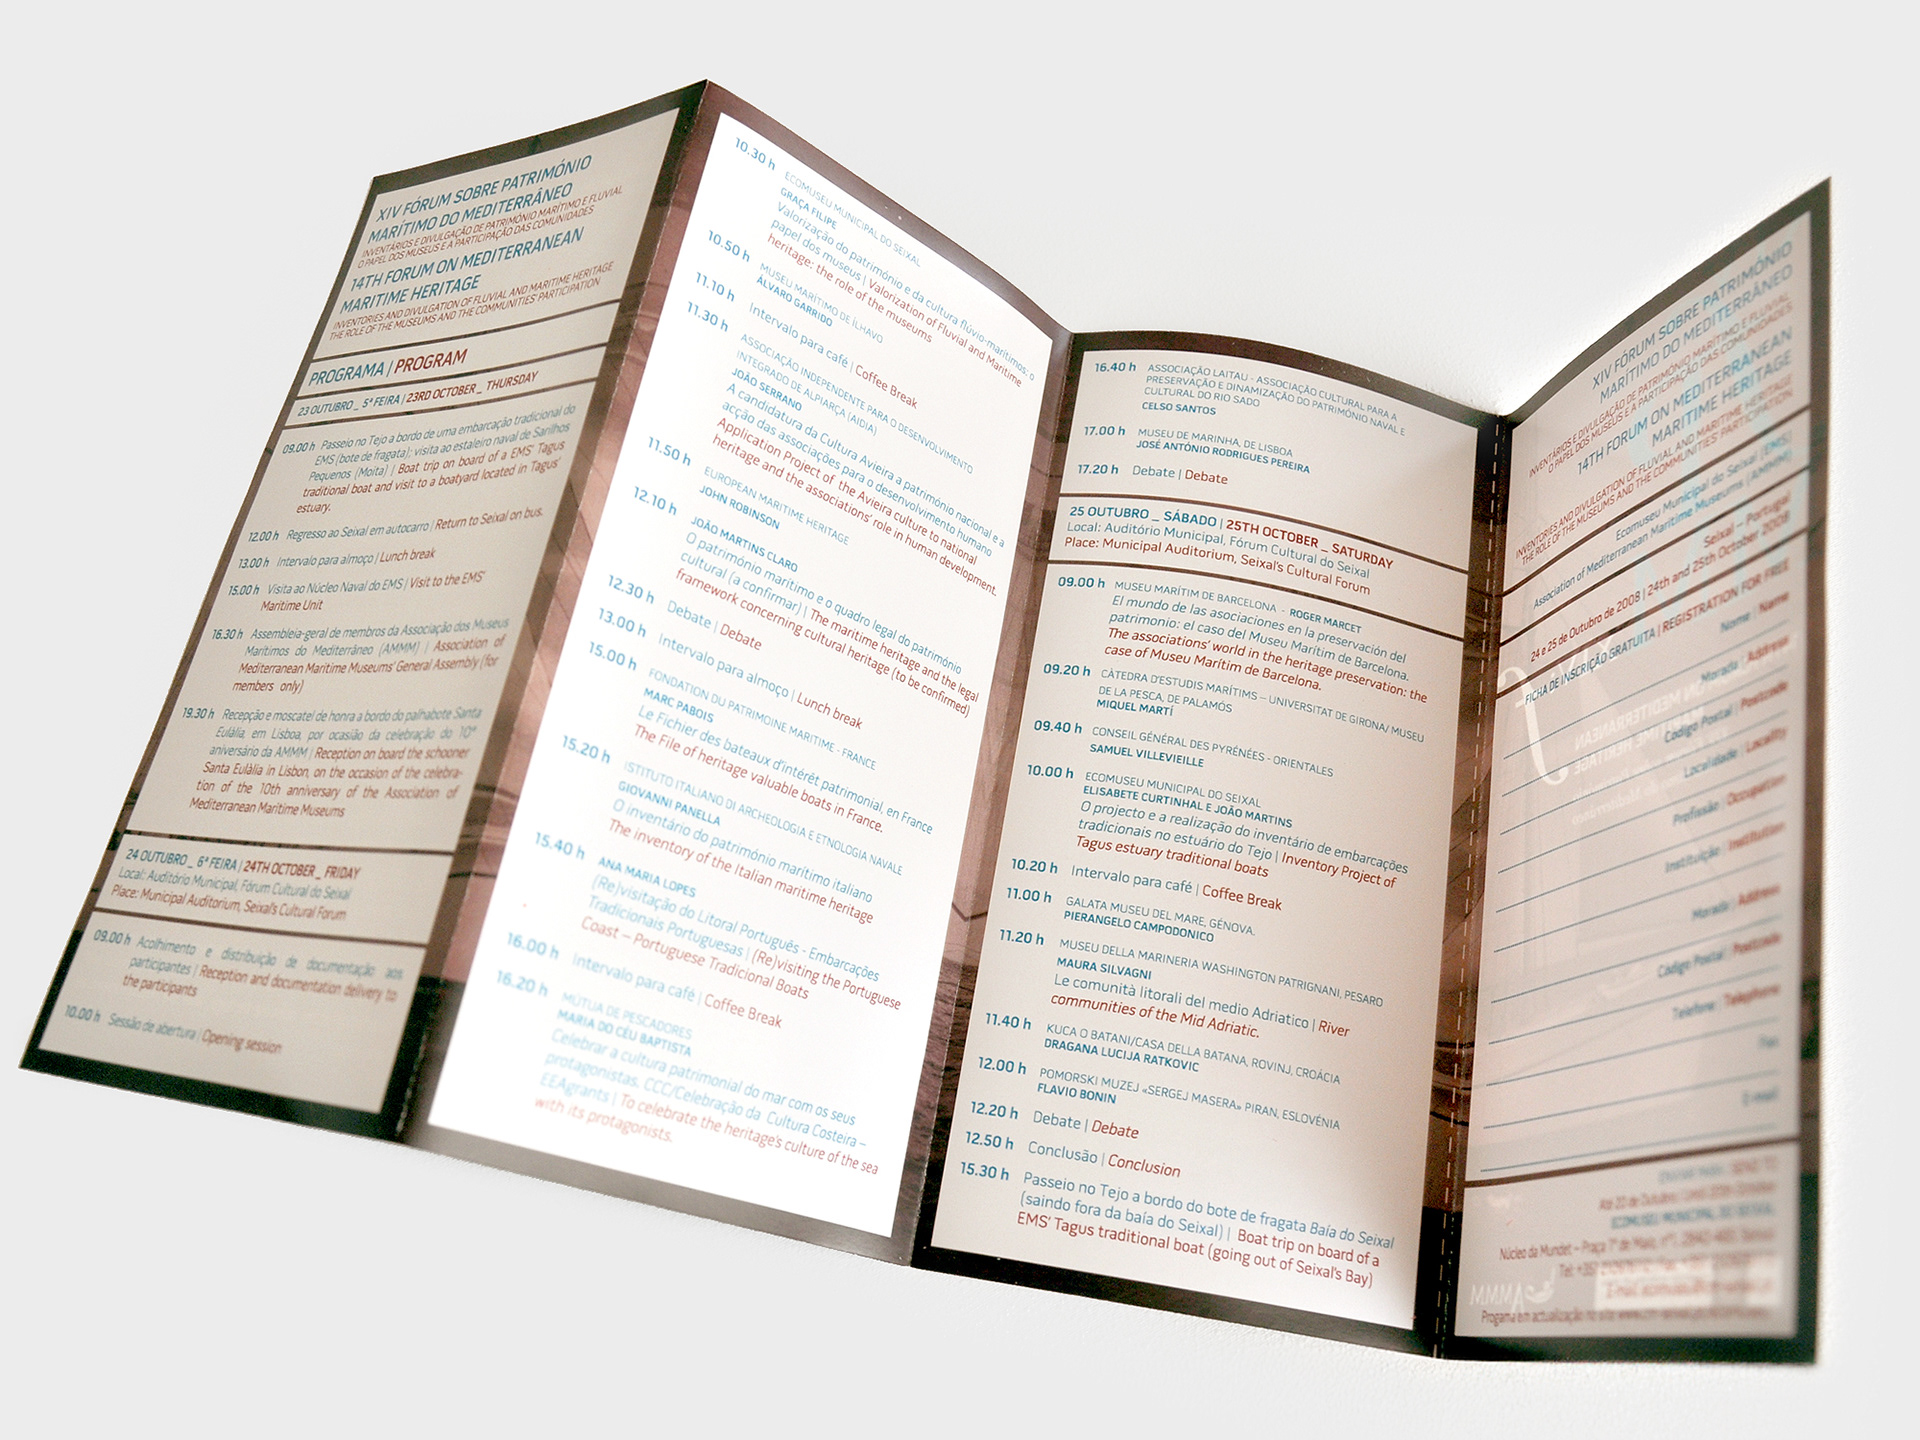 XIV FÓRUM SOBRE PATRIMÓNIO
MARÍTIMO DO MEDITERRÂNEO
INVENTÁRIOS E DIVULGAÇÃO DE PATRIMÓNIO MARÍTIMO E FLUVIAL
O PAPEL DOS MUSEUS E A PARTICIPAÇÃO DAS COMUNIDADES
14TH FORUM ON MEDITERRANEAN
MARITIME HERITAGE
INVENTORIES AND DIVULGATION OF FLUVIAL AND MARITIME HERITAGE
THE ROLE OF THE MUSEUMS AND THE COMMUNITIES' PARTICIPATION
PROGRAMA | PROGRAM
23 OUTUBRO _ 5ª FEIRA | 23RD OCTOBER _ THURSDAY
09.00 h Passeio no Tejo a bordo de uma embarcação tradicional do
EMS (bote de fragata); visita ao estaleiro naval de Sarilhos
Pequenos (Moita) | Boat trip on board of a EMS' Tagus
traditional boat and visit to a boatyard located in Tagus'
estuary.
12.00 h Regresso ao Seixal em autocarro | Return to Seixal on bus.
13.00 h Intervalo para almoço | Lunch break
15.00 h Visita ao Núcleo Naval do EMS | Visit to the EMS'
Maritime Unit
16.30 h Assembleia-geral de membros da Associação dos Museus
Marítimos do Mediterrâneo (AMMM) | Association of
Mediterranean Maritime Museums' General Assembly (for
members only)
19.30 h Recepção e moscatel de honra a bordo do palhabote Santa
Eulàlia, em Lisboa, por ocasião da celebração do 10º
aniversário da AMMM | Reception on board the schooner
Santa Eulàlia in Lisbon, on the occasion of the celebra-
tion of the 10th anniversary of the Association of
Mediterranean Maritime Museums
24 OUTUBRO _ 6ª FEIRA | 24TH OCTOBER _ FRIDAY
Local: Auditório Municipal, Fórum Cultural do Seixal
Place: Municipal Auditorium, Seixal's Cultural Forum
09.00 h Acolhimento e distribuição de documentação aos
participantes | Reception and documentation delivery to
the participants
10.00 h Sessão de abertura | Opening session
10.30 h ECOMUSEU MUNICIPAL DO SEIXAL
GRAÇA FILIPE
Valorização do património e da cultura flúvio-marítimos: o
papel dos museus | Valorization of Fluvial and Maritime
heritage: the role of the museums
10.50 h MUSEU MARÍTIMO DE ÍLHAVO
ÁLVARO GARRIDO
11.10 h Intervalo para café | Coffee Break
11.30 h ASSOCIAÇÃO INDEPENDENTE PARA O DESENVOLVIMENTO
INTEGRADO DE ALPIARÇA (AIDIA)
JOÃO SERRANO
A candidatura da Cultura Avieira a património nacional e a
acção das associações para o desenvolvimento humano
Application Project of the Avieira culture to national
heritage and the associations' role in human development.
11.50 h EUROPEAN MARITIME HERITAGE
JOHN ROBINSON
12.10 h JOÃO MARTINS CLARO
O património marítimo e o quadro legal do património
cultural (a confirmar) | The maritime heritage and the legal
framework concerning cultural heritage (to be confirmed)
12.30 h Debate | Debate
13.00 h Intervalo para almoço | Lunch break
15.00 h FONDATION DU PATRIMOINE MARITIME - FRANCE
MARC PABOIS
Le Fichier des bateaux d'intérêt patrimonial, en France
The File of heritage valuable boats in France.
15.20 h ISTITUTO ITALIANO DI ARCHEOLOGIA E ETNOLOGIA NAVALE
GIOVANNI PANELLA
O inventário do património marítimo italiano
The inventory of the Italian maritime heritage
15.40 h ANA MARIA LOPES
(Re)visitação do Litoral Português - Embarcações
Tradicionais Portuguesas | (Re)visiting the Portuguese
Coast – Portuguese Tradicional Boats
16.00 h Intervalo para café | Coffee Break
16.20 h MÚTUA DE PESCADORES
MARIA DO CÉU BAPTISTA
Celebrar a cultura patrimonial do mar com os seus
protagonistas. CCC/Celebração da Cultura Costeira –
EEAgrants | To celebrate the heritage's culture of the sea
with its protagonists.
16.40 h ASSOCIAÇÃO LAITAU - ASSOCIAÇÃO CULTURAL PARA A
PRESERVAÇÃO E DINAMIZAÇÃO DO PATRIMÓNIO NAVAL E
CULTURAL DO RIO SADO
CELSO SANTOS
17.00 h MUSEU DE MARINHA, DE LISBOA
JOSÉ ANTÓNIO RODRIGUES PEREIRA
17.20 h Debate | Debate
25 OUTUBRO _ SÁBADO | 25TH OCTOBER _ SATURDAY
Local: Auditório Municipal, Fórum Cultural do Seixal
Place: Municipal Auditorium, Seixal's Cultural Forum
09.00 h MUSEU MARÍTIM DE BARCELONA - ROGER MARCET
El mundo de las asociaciones en la preservación del
patrimonio: el caso del Museu Marítim de Barcelona.
The associations' world in the heritage preservation: the
case of Museu Marítim de Barcelona.
09.20 h CÀTEDRA D'ESTUDIS MARÍTIMS – UNIVERSITAT DE GIRONA/ MUSEU
DE LA PESCA, DE PALAMÓS
MIQUEL MARTÍ
09.40 h CONSEIL GÉNÉRAL DES PYRÉNÉES - ORIENTALES
SAMUEL VILLEVIEILLE
10.00 h ECOMUSEU MUNICIPAL DO SEIXAL
ELISABETE CURTINHAL E JOÃO MARTINS
O projecto e a realização do inventário de embarcações
tradicionais no estuário do Tejo | Inventory Project of
Tagus estuary traditional boats
10.20 h Intervalo para café | Coffee Break
11.00 h GALATA MUSEU DEL MARE, GÉNOVA.
PIERANGELO CAMPODONICO
11.20 h MUSEU DELLA MARINERIA WASHINGTON PATRIGNANI, PESARO
MAURA SILVAGNI
Le comunità litorali del medio Adriatico | River
communities of the Mid Adriatic.
11.40 h KUCA O BATANI/CASA DELLA BATANA, ROVINJ, CROÁCIA
DRAGANA LUCIJA RATKOVIC
12.00 h POMORSKI MUZEJ «SERGEJ MASERA» PIRAN, ESLOVÉNIA
FLAVIO BONIN
12.20 h Debate | Debate
12.50 h Conclusão | Conclusion
15.30 h Passeio no Tejo a bordo do bote de fragata Baía do Seixal
(saindo fora da baía do Seixal) | Boat trip on board of a
EMS' Tagus traditional boat (going out of Seixal's Bay)
XIV FÓRUM SOBRE PATRIMÓNIO
MARÍTIMO DO MEDITERRÂNEO
INVENTÁRIOS E DIVULGAÇÃO DE PATRIMÓNIO MARÍTIMO E FLUVIAL
O PAPEL DOS MUSEUS E A PARTICIPAÇÃO DAS COMUNIDADES
14TH FORUM ON MEDITERRANEAN
MARITIME HERITAGE
INVENTORIES AND DIVULGATION OF FLUVIAL AND MARITIME HERITAGE
THE ROLE OF THE MUSEUMS AND THE COMMUNITIES' PARTICIPATION
Ecomuseu Municipal do Seixal (EMS)
Association of Mediterranean Maritime Museums (AMMM)
Seixal – Portugal
24 e 25 de Outubro de 2008 | 24th and 25th October 2008
FICHA DE INSCRIÇÃO GRATUITA | REGISTRATION FOR FREE
Nome | Name
Morada | Address
Código Postal | Postcode
Localidade | Locality
Profissão | Occupation
Instituição | Institution
Morada | Address
Código Postal | Postcode
Telefone | Telephone
Fax
E-mail
ECOMUSEU MUNICIPAL DO SEIXAL
Núcleo da Mundet – Praça 1º de Maio, nº1,
Programa em actualização no site